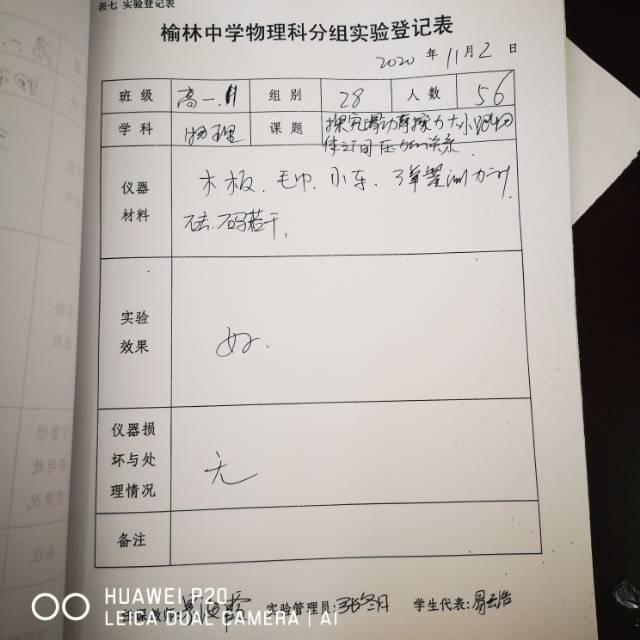 表七 实验登记表
榆林中学物理科分组实验登记表
2020 年 11 月 2 日
班 级 高一.11 组 别 28 人 数 56
学 科 物理 课 题 探究滑动摩擦力大小跟物
体之间压力的关系.
仪器
材料
木板、毛巾、小车、弹簧测力计
砝码若干、
实验
效果
好.
仪器损
坏与处
理情况
无
备注
实验管理员: 学生代表:
HUAWEI P20
LEICA DUAL CAMERA | AI